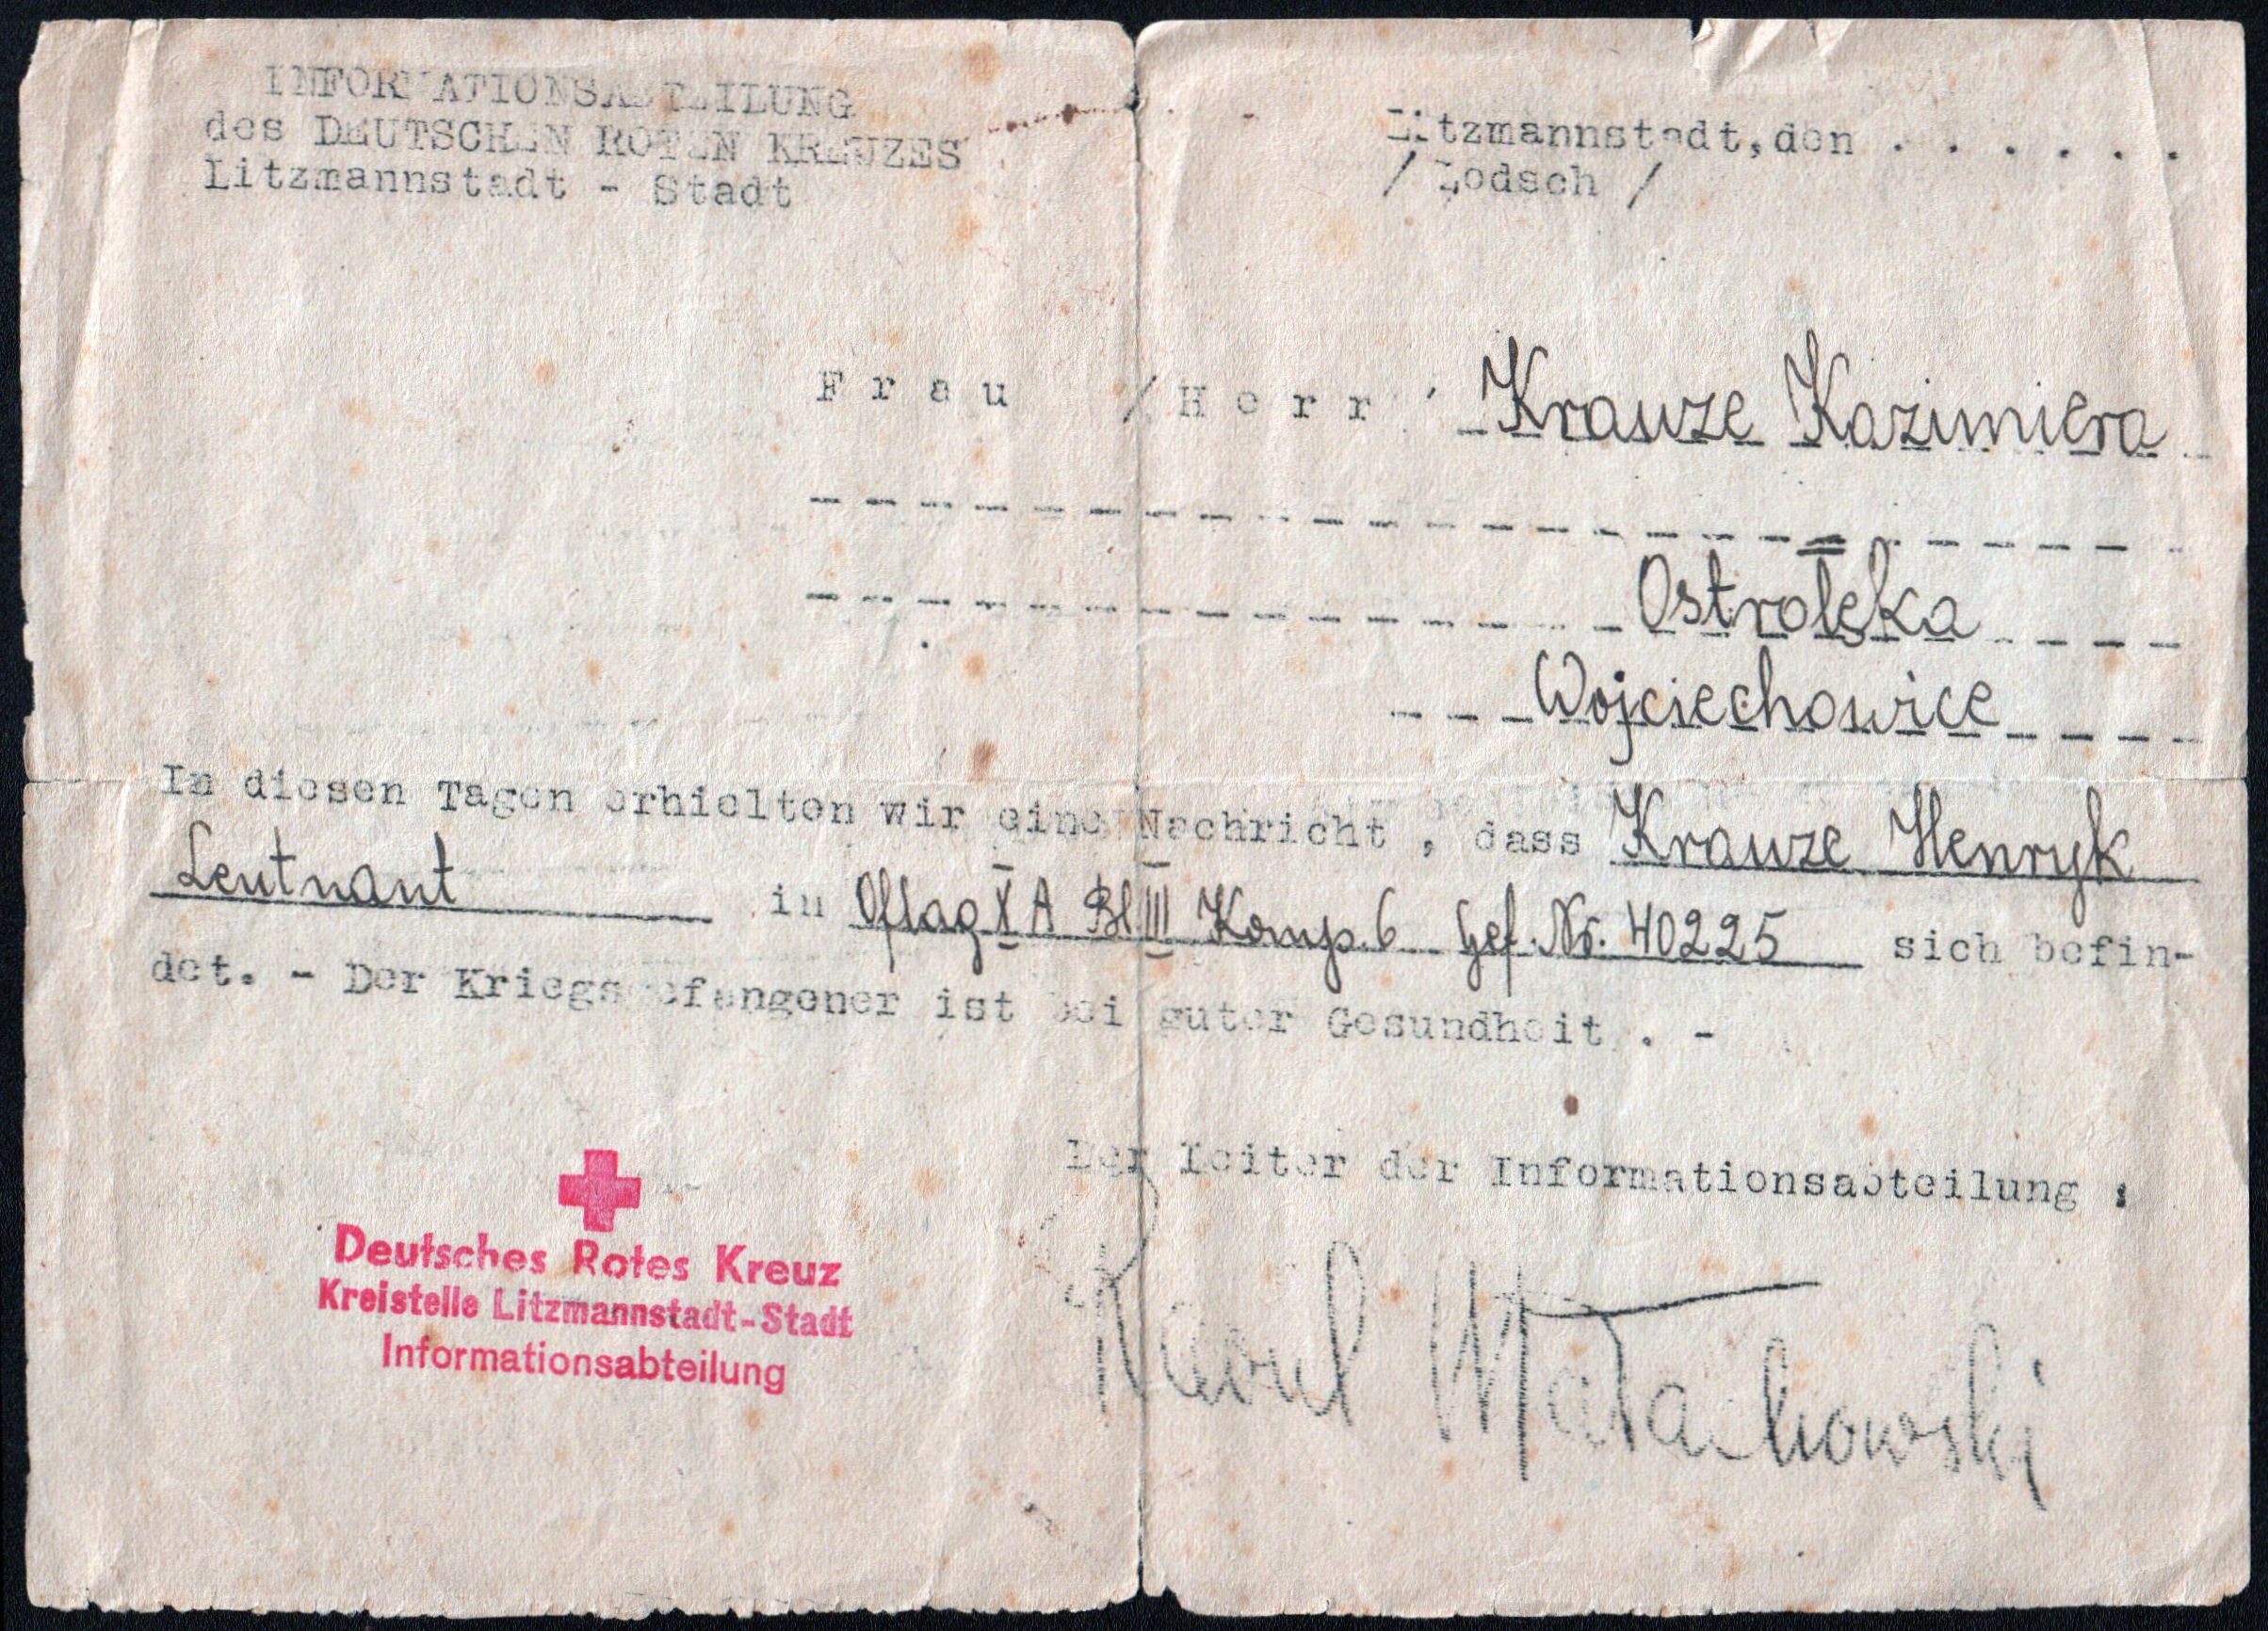 INFORMATIONSABTEILUNG
des DEUTSCHEN ROTEN KREUZES
Litzmannstadt - Stadt
Litzmannstadt, den . . . . . .
/ Lodsch /
Frau / Herr Krauze Kazimiera
Ostrołęka
Wojciechowice
In diesen Tagen erhielten wir eine Nachricht , dass Krauze Henryk
Leutnant in Oflag X A Bl III Komp. 6 Gef. Nr. 40225 sich befin-
det. - Der Kriegsgefangener ist bei guter Gesundheit . -
Der Leiter der Informationsabteilung :
Deutsches Rotes Kreuz
Kreistelle Litzmannstadt-Stadt
Informationsabteilung